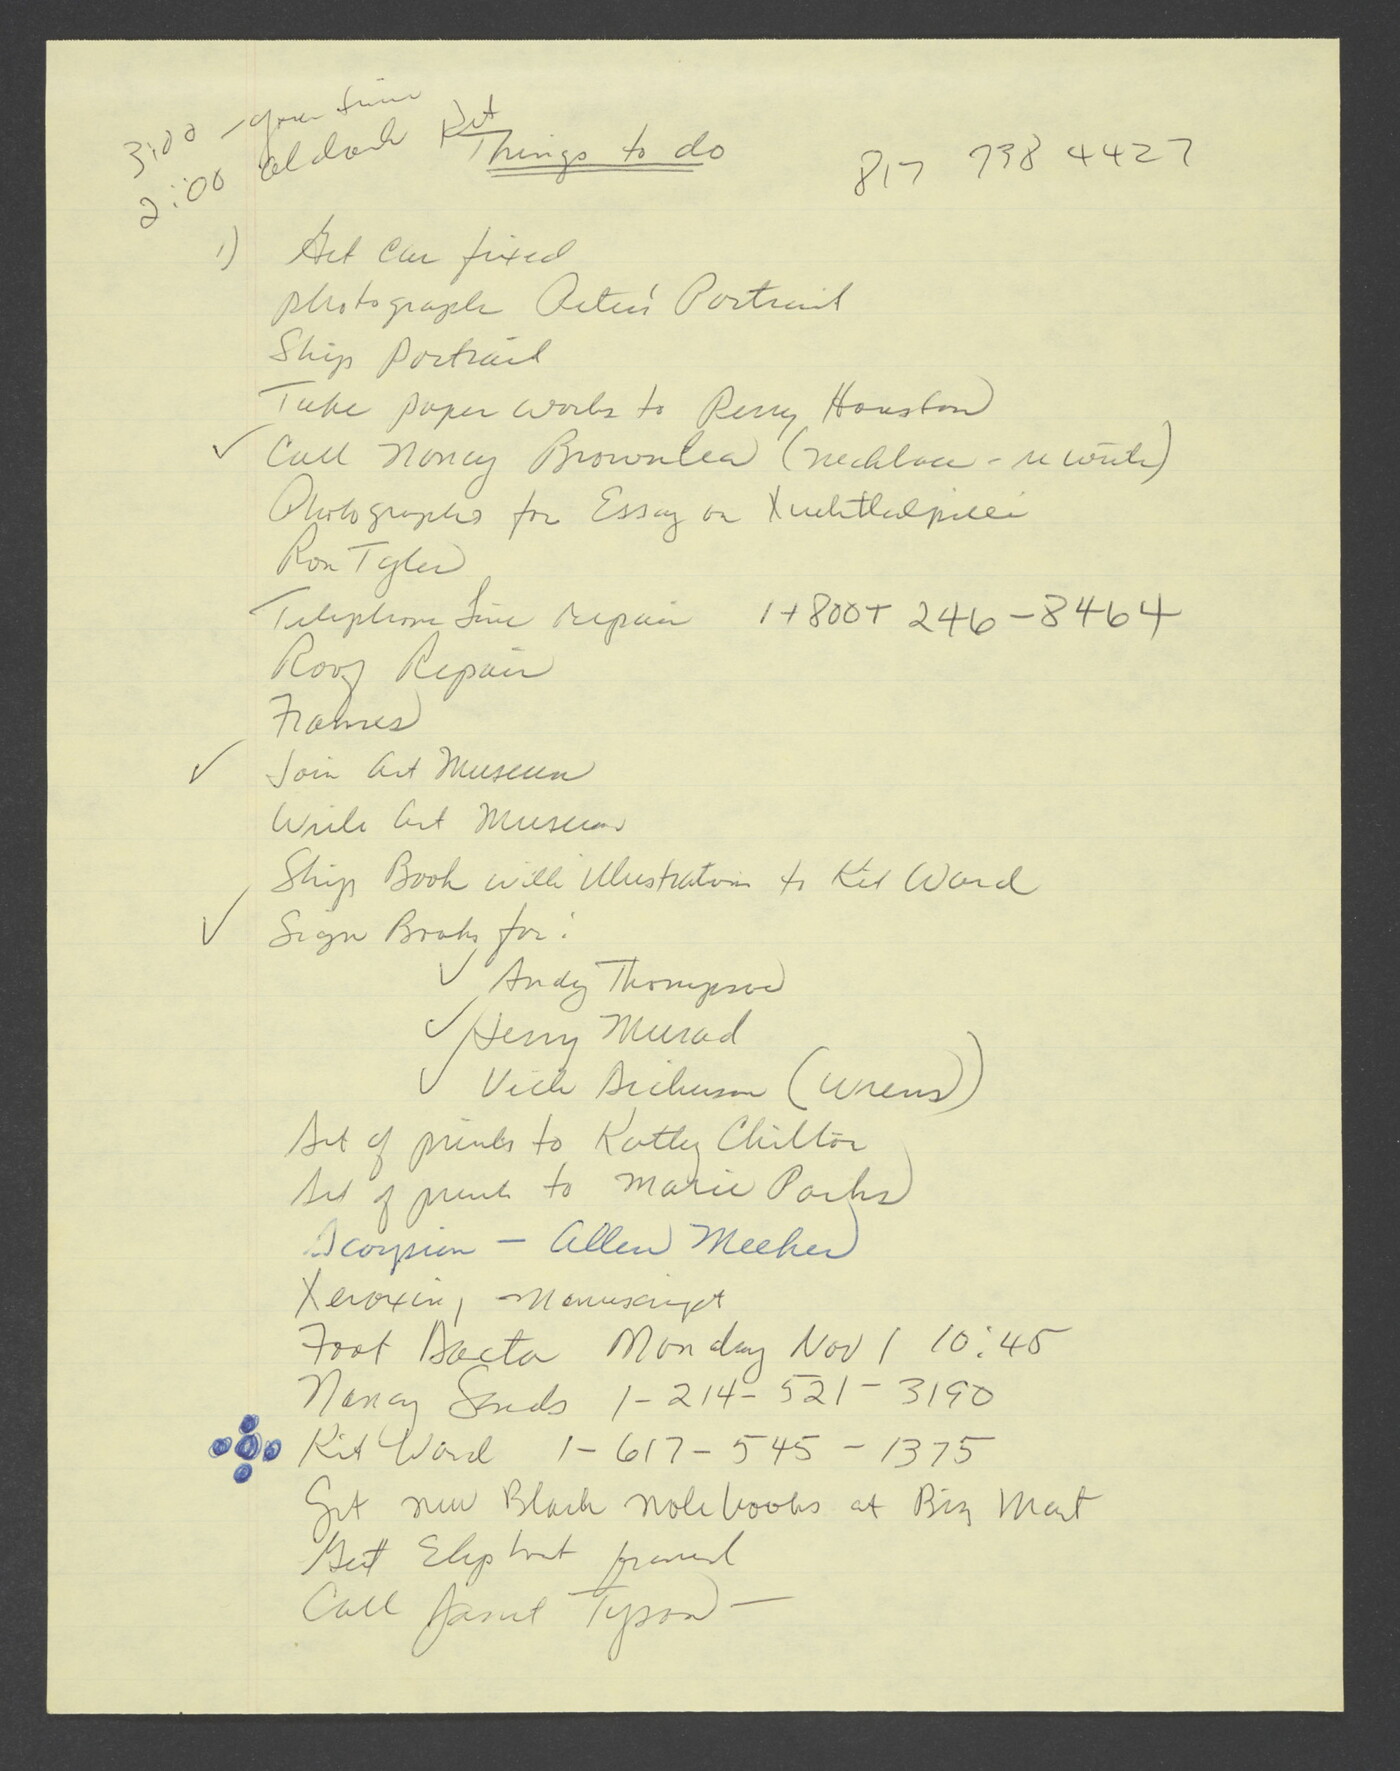 3:00 - your time
2:00 o'clock Kit
Things to do
817 738 4427
1) Get car fixed
photograph Peter's Portrait
Ship portrait
Take paper works to Perry Houston
✓ Call Nancy Brownlee (necklace - rewrite)
Photographs for Essay on
Ron Tyler
Telephone Line repair 1+800+ 246-8464
Roof Repair
Frames
✓ Join Art Museum
Write Art Museum
Ship Book with illustrations to Kit Ward
✓ Sign Books for:
✓ Andy Thompson
✓ Henry Murad
✓ Vick Dickerson (Wrens)
Set of prints to Kathy Chilton
Set of prints to Marie Parks
Scorpion - Allen Meeker
Xeroxing manuscript
Foot Doctor Monday Nov 1 10:45
Nancy Sends 1-214-521-3190
Kit Ward 1-617-545-1375
Get new Black notebooks at Biz Mart
Get Elephant framed
Call Janet Tyson —